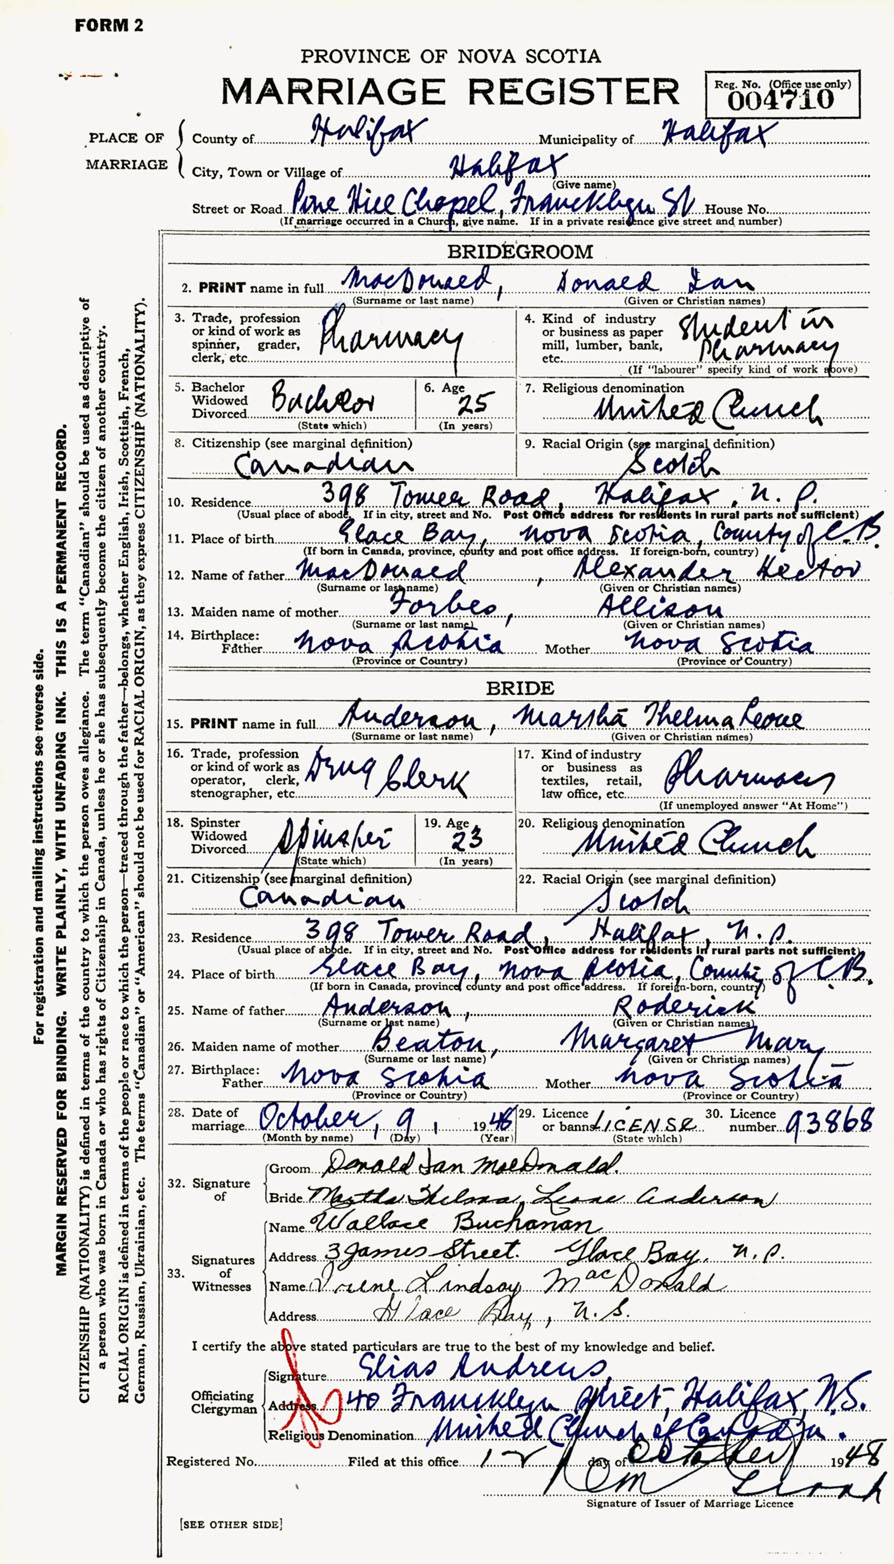 FORM 2
PROVINCE OF NOVA SCOTIA
MARRIAGE REGISTER
Reg. No. (Office use only)
004710
PLACE OF MARRIAGE
County of Halifax Municipality of Halifax
City, Town or Village of Halifax
(Give name)
Street or Road Pine Hill Chapel, Francklyn St House No.
(If marriage occurred in a Church, give name. If in a private residence give street and number)
BRIDEGROOM
2. PRINT name in full MacDonald, Donald Ian
(Surname or last name) (Given or Christian names)
3. Trade, profession or kind of work as spinner, grader, clerk, etc. Pharmacy
4. Kind of industry or business as paper mill, lumber, bank, etc. Student in Pharmacy
(If "labourer" specify kind of work above)
5. Bachelor Widowed Divorced Bachelor
(State which)
6. Age 25
(In years)
7. Religious denomination
United Church
8. Citizenship (see marginal definition)
Canadian
9. Racial Origin (see marginal definition)
Scotch
10. Residence 398 Tower Road, Halifax, N.S.
(Usual place of abode. If in city, street and No. Post Office address for residents in rural parts not sufficient)
11. Place of birth Glace Bay, Nova Scotia, County of C.B.
(If born in Canada, province, county and post office address. If foreign-born, country)
12. Name of father MacDonald, Alexander Hector
(Surname or last name) (Given or Christian names)
13. Maiden name of mother Forbes, Allison
(Surname or last name) (Given or Christian names)
14. Birthplace:
Father Nova Scotia Mother Nova Scotia
(Province or Country) (Province or Country)
BRIDE
15. PRINT name in full Anderson, Martha Thelma Leone
(Surname or last name) (Given or Christian names)
16. Trade, profession or kind of work as operator, clerk, stenographer, etc. Drug Clerk
17. Kind of industry or business as textiles, retail, law office, etc. Pharmacy
(If unemployed answer "At Home")
18. Spinster Widowed Divorced Spinster
(State which)
19. Age 23
(In years)
20. Religious denomination
United Church
21. Citizenship (see marginal definition)
Canadian
22. Racial Origin (see marginal definition)
Scotch
23. Residence 398 Tower Road, Halifax, N.S.
(Usual place of abode. If in city, street and No. Post Office address for residents in rural parts not sufficient)
24. Place of birth Glace Bay, Nova Scotia, County of C.B.
(If born in Canada, province, county and post office address. If foreign-born, country)
25. Name of father Anderson, Roderick
(Surname or last name) (Given or Christian names)
26. Maiden name of mother Beaton, Margaret Mary
(Surname or last name) (Given or Christian names)
27. Birthplace:
Father Nova Scotia Mother Nova Scotia
(Province or Country) (Province or Country)
28. Date of marriage October, 9, 1948
(Month by name) (Day) (Year)
29. Licence or banns LICENSE
(State which)
30. Licence number 93868
32. Signature of
Groom Donald Ian MacDonald.
Bride Martha Thelma Leone Anderson
33. Signatures of Witnesses
Name Wallace Buchanan
Address 3 James Street. Glace Bay, N.S.
Name Irene Lindsay MacDonald
Address Glace Bay, N.S.
I certify the above stated particulars are true to the best of my knowledge and belief.
Officiating Clergyman
Signature Elias Andrews
Address 40 Francklyn Street, Halifax, N.S.
Religious Denomination United Church of Canada.
Registered No. Filed at this office 12 day of October 1948
Signature of Issuer of Marriage Licence
[SEE OTHER SIDE]
For registration and mailing instructions see reverse side.
MARGIN RESERVED FOR BINDING. WRITE PLAINLY, WITH UNFADING INK. THIS IS A PERMANENT RECORD.
CITIZENSHIP (NATIONALITY) is defined in terms of the country to which the person owes allegiance. The term "Canadian" should be used as descriptive of
a person who was born in Canada or who has rights of Citizenship in Canada, unless he or she has subsequently become the citizen of another country.
RACIAL ORIGIN is defined in terms of the people or race to which the person—traced through the father—belongs, whether English, Irish, Scottish, French,
German, Russian, Ukrainian, etc. The terms "Canadian" or "American" should not be used for RACIAL ORIGIN, as they express CITIZENSHIP (NATIONALITY).